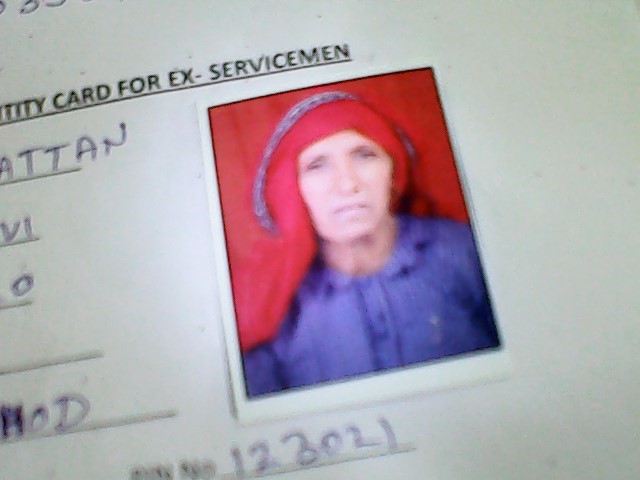 TITY CARD FOR EX- SERVICEMEN
ATTAN
VI
O
HOD
PIN NO 123021